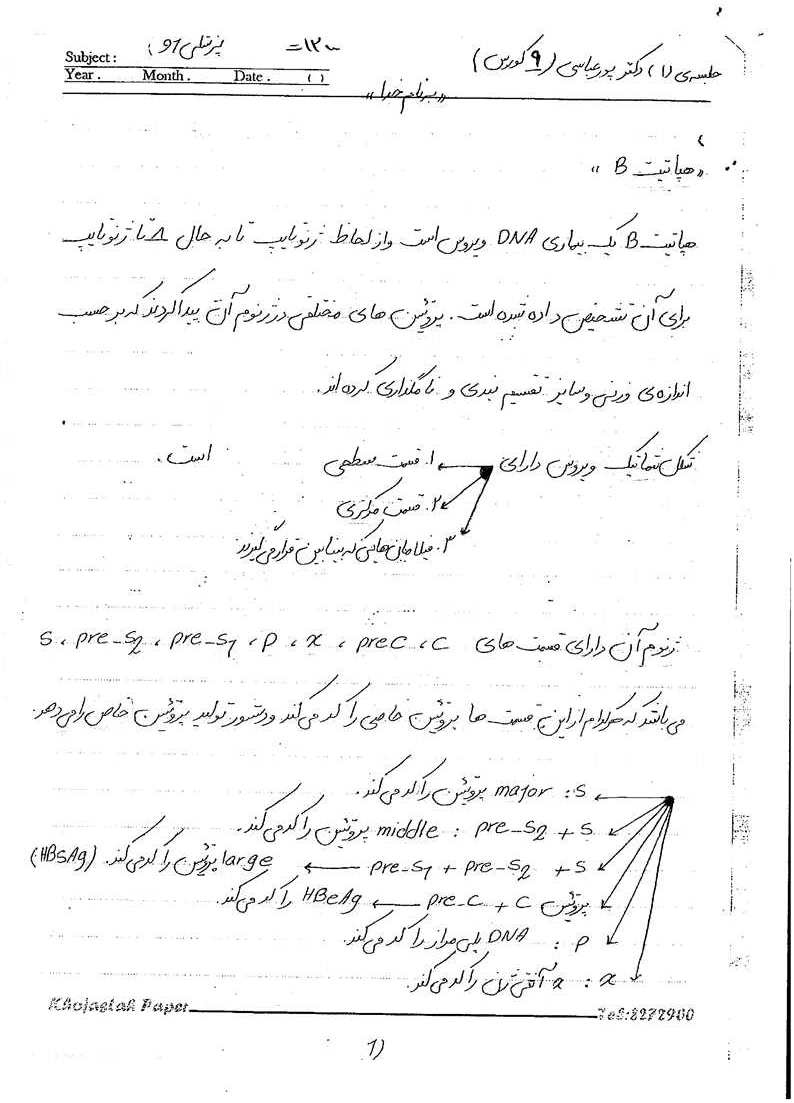 جلسه‌ی (۱) دکتر پورعباسی (۹ کورس) ۱۲۰ت پزشکی 91
Subject:
Year. Month. Date. ( )
«به نام خدا»
«هپاتیت B»
هپاتیت B یک بیماری DNA ویروس است و از لحاظ ژنوتایپ تا به حال ۸ تا ژنوتایپ
برای آن تشخیص داده شده است. پروتئین های مختلفی در ژنوم آن پیدا کردند که بر حسب
اندازه‌ی وزنی و سایز تقسیم بندی و نامگذاری کرده اند.
شکل شماتیک ویروس دارای ۱. قسمت سطحی است.
۲. قسمت مرکزی
۳. فیلامان هایی که بینابین قرار می گیرند
ژنوم آن دارای قسمت های S، pre-S2، pre-S1، P، x، preC، C
می باشد که هرکدام از این قسمت ها پروتئین خاصی را کد می کند و دستور تولید پروتئین خاص را می دهد.
S: major پروتئین را کد می کند.
pre-S2 + S: middle پروتئین را کد می کند.
pre-S1 + pre-S2 + S ← large پروتئین را کد می کند. (HBsAg)
پروتئین pre-C + C ← HBeAg را کد می کند.
P: DNA پلی مراز را کد می کند.
x: x آنتی ژن را کد می کند.
Khojastah Paper Tel:8272900
1)